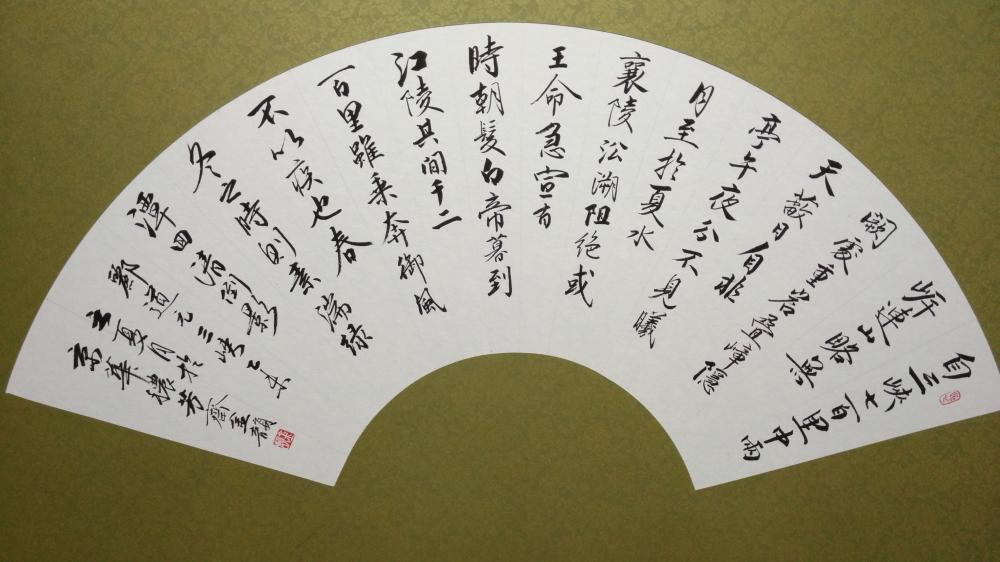 自三峽七百里中兩
岸連山略無
闕處重岩疊嶂隱
天蔽日自非
亭午夜分不見曦
月至於夏水
襄陵沿溯阻絕或
王命急宣有
時朝髮白帝暮到
江陵其間千二
百里雖乘奔御風
不以疾也春
冬之時則素湍綠
潭回清倒影
酈道元三峽乙未
夏月於
華穠芳
齋金韻